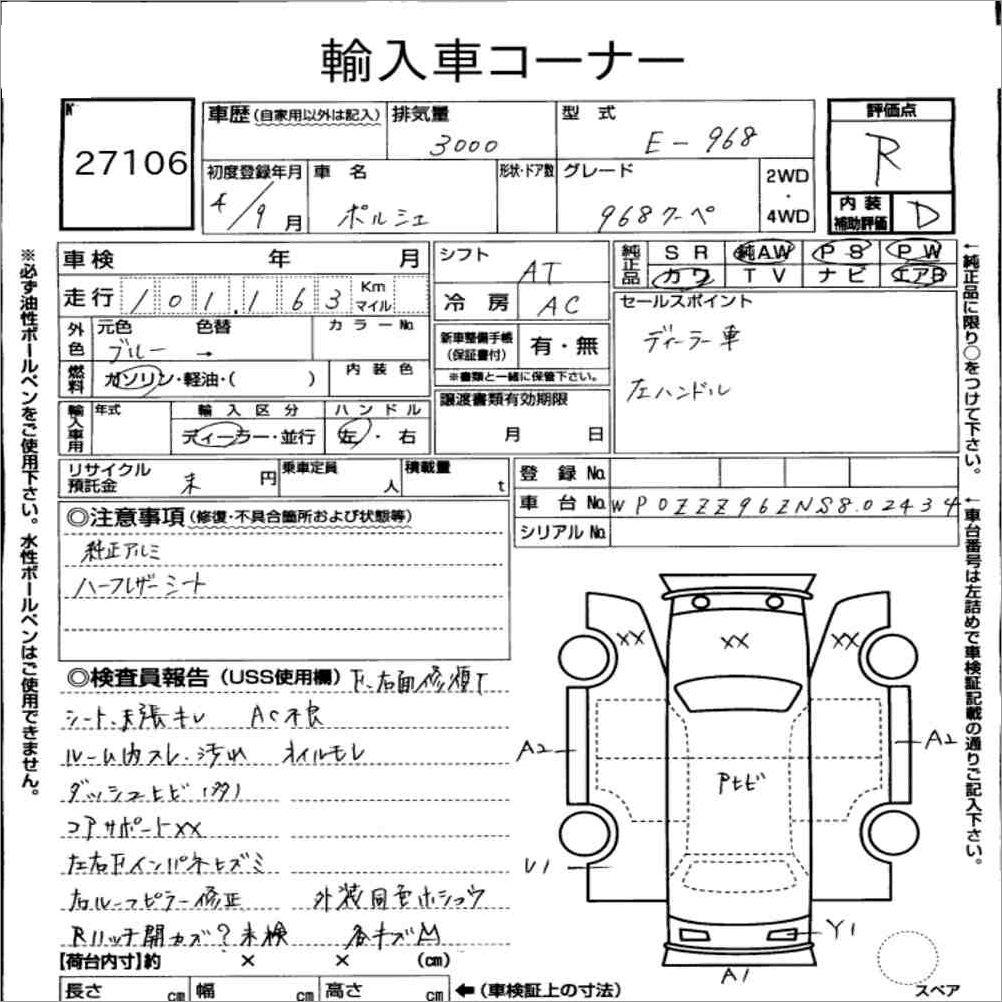 輸入車コーナー
№
27106
車歴 (自家用以外は記入)
排気量
3000
型式
E-968
評価点
R
初度登録年月
4/9月
車名
ポルシェ
形状・ドア数
グレード
968クーペ
2WD
・
4WD
内装
補助評価
D
車検 年 月
シフト
AT
純正品
SR 純AW PS PW
カワ TV ナビ エアB
走行 101,163 Km マイル
冷房 AC
セールスポイント
ディーラー車
左ハンドル
外色
元色 色替
ブルー →
カラーNo.
新車整備手帳
(保証書付)
有・無
※書類と一緒に保管下さい。
燃料
ガソリン・軽油・( )
内装色
譲渡書類有効期限
月 日
輸入車用
年式
輸入区分
ディーラー・並行
ハンドル
左・右
リサイクル
預託金
未 円
乗車定員
人
積載量
t
登録No.
車台No. WP0ZZZ96ZNS802434
シリアルNo.
◎注意事項 (修復・不具合箇所および状態等)
純正アルミ
ハーフレザーシート
◎検査員報告 (USS使用欄) F、右面修復下
シート、天張キレ AC不良
ルーム内スレ・汚れ オイルモレ
ダッシュヒビ(多)
コアサポートXX
左右Fインパネヒズミ
右ルーフピラー修正 外装同色ホショウ
Rハッチ開カズ?未検 各キズM
【荷台内寸】約 × × (cm)
長さ cm 幅 cm 高さ cm
←(車検証上の寸法)
XX
XX
XX
A2
A2
Pヒビ
U1
Y1
A1
スペア
※必ず油性ボールペンをご使用下さい。水性ボールペンはご使用できません。
←純正品に限り○をつけて下さい。
←車台番号は左詰めで車検証記載の通りご記入下さい。